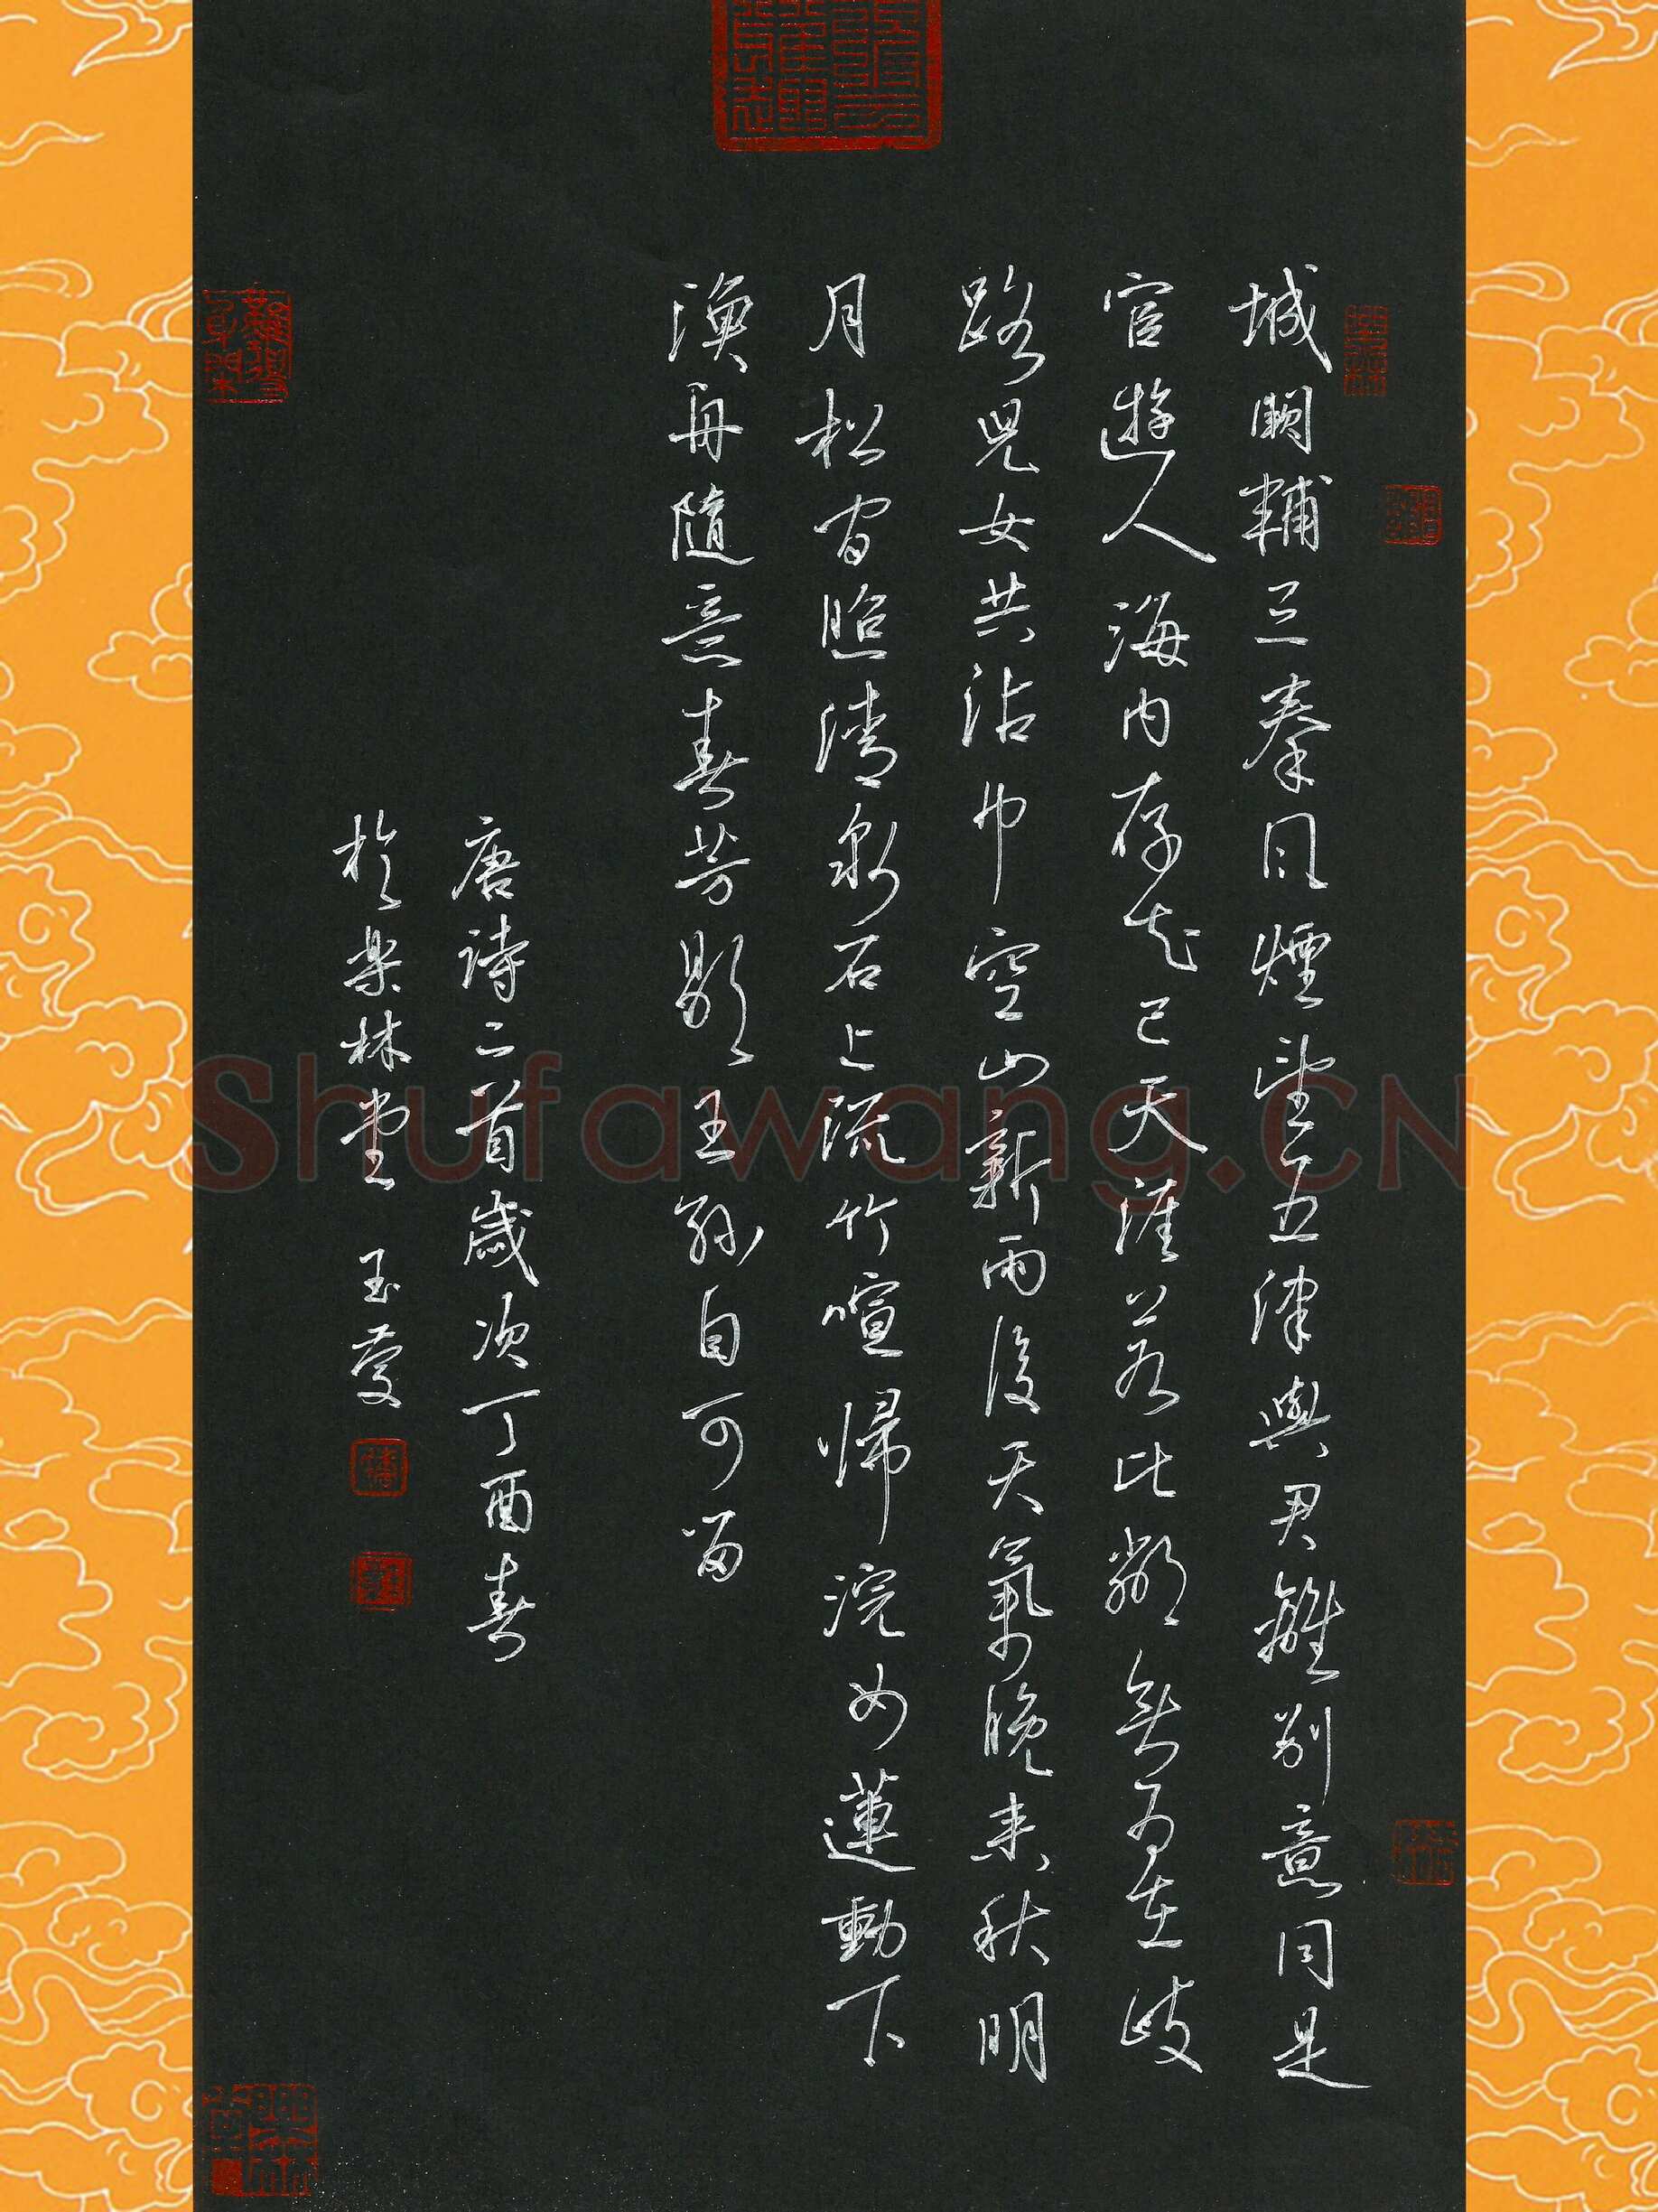 城闕輔三秦風煙望五津與君離別意同是
宦遊人海内存知己天涯若比鄰無為在歧
路兒女共沾巾空山新雨後天氣晚来秋明
月松間照清泉石上流竹喧歸浣女蓮動下
漁舟隨意春芳歇王孫自可留
唐詩二首歲次丁酉春
於楽林堂 玉
Shufawang.CN